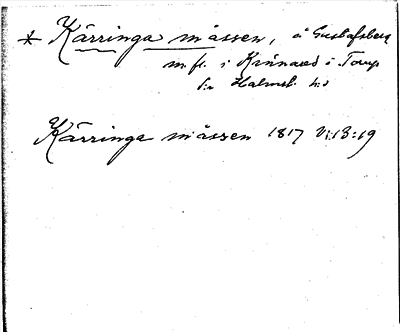 * Kärringa måssen, å Gustafsberg
m. fl. i Kinnared i Torup
sn Halmst. hd
Kärringa måssen 1817 V:13:19